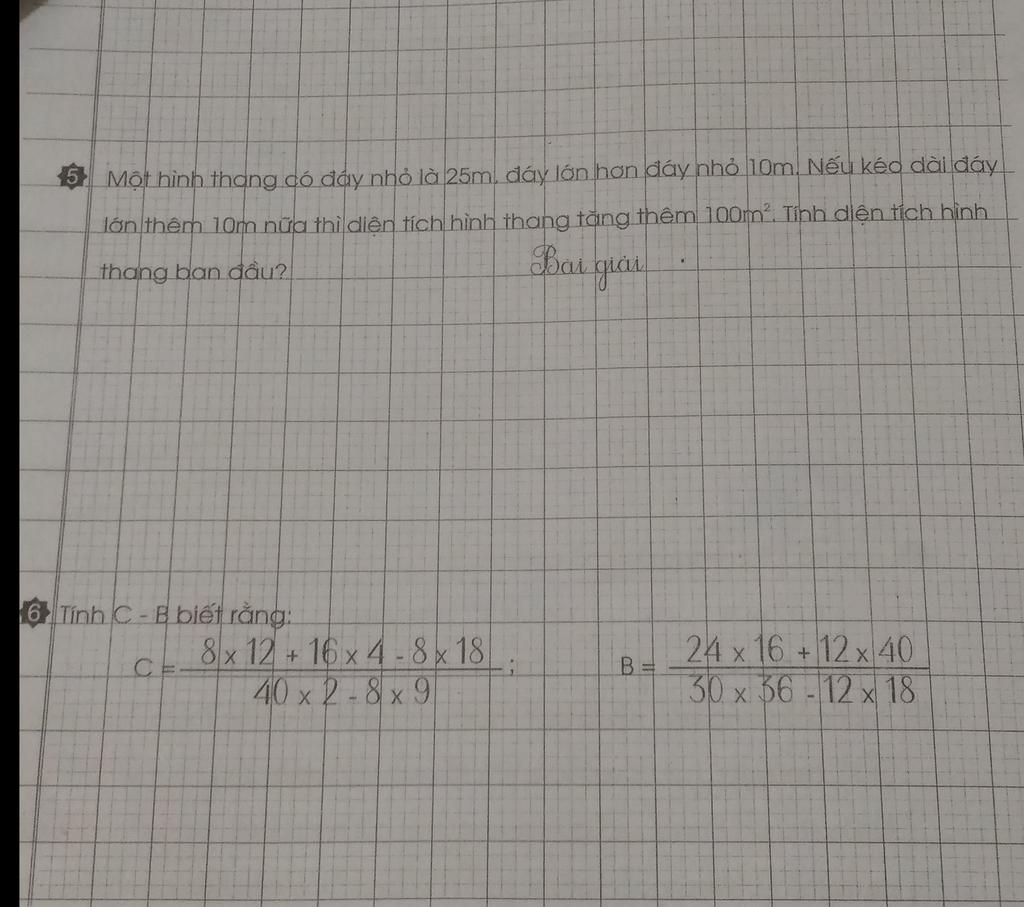 5 Một hình thang có đáy nhỏ là 25m, đáy lớn hơn đáy nhỏ 10m. Nếu kéo dài đáy
lớn thêm 10m nữa thì diện tích hình thang tăng thêm 100m². Tính diện tích hình
thang ban đầu?
Bài giải
6 Tính C - B biết rằng:
C = (8 x 12 + 16 x 4 - 8 x 18) / (40 x 2 - 8 x 9) ; B = (24 x 16 + 12 x 40) / (30 x 36 - 12 x 18)